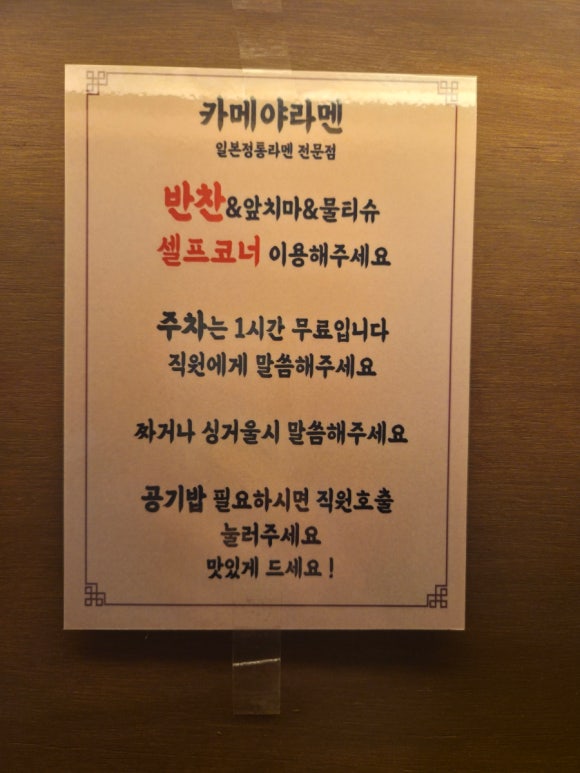 카메야라멘
일본정통라멘 전문점
반찬&앞치마&물티슈
셀프코너 이용해주세요
주차는 1시간 무료입니다
직원에게 말씀해주세요
짜거나 싱거울시 말씀해주세요
공기밥 필요하시면 직원호출
눌러주세요
맛있게 드세요!